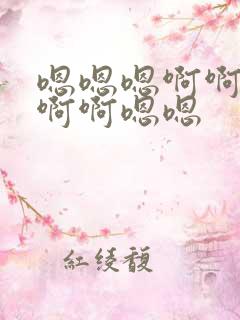 嗯嗯嗯啊啊
啊啊嗯嗯
红绫馥